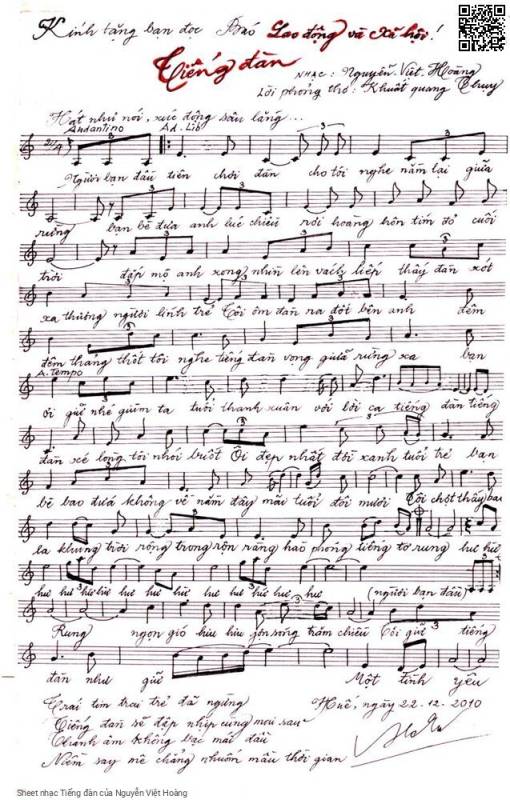 Kính tặng bạn đọc Báo Lao động và Xã hội!
Tiếng đàn
NHẠC: Nguyễn Việt Hoàng
Lời phỏng thơ: Khuất Quang Thụy
Hát như nói, xúc động sâu lắng...
Andantino Ad. Lib
Người bạn đầu tiên chơi đàn cho tôi nghe nằm lại giữa
rừng bạn bè đưa anh lúc chiều rồi hoàng hôn tím đỏ cuối
trời đắp mộ anh xong nhìn lên vách bếp thấy đàn xót
xa thương người lính trẻ Tôi ôm đàn ra đốt bên anh đêm
đêm thảng thốt tôi nghe tiếng đàn vọng giữa rừng xa bạn
A. Tempo
ơi giữ nhé giùm ta tuổi thanh xuân với lời ca tiếng đàn tiếng
đàn xé lòng tôi nhói buốt Ôi đẹp nhất đời xanh tuổi trẻ bạn
bè bao đứa không về nằm đây mãi tuổi đôi mươi Tôi chợt thấy bao
la khung trời rộng trong rộn ràng hào phóng tiếng tơ rung hư hừ
hư hư hư hừ hư hư hư hư hư (người bạn đầu)
Rừng ngọn gió hiu hiu gợn sóng trăm chiều Tôi giữ tiếng
đàn như giữ Một tình yêu
Trái tim trai trẻ đã ngừng
Tiếng đàn sẽ đập nhịp cùng mai sau
Thanh âm không bạc mái đầu
Niềm say mê chẳng nhuốm màu thời gian
Huế, ngày 22.12.2010
Sheet nhạc Tiếng đàn của Nguyễn Việt Hoàng